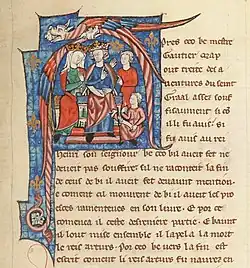 Apres ceo ke mestre
Gautier Map
out treite des a
uentures du seint
Graal assez souf
fisaument si com
il li fu auis. si
fu auis au rei
henri son seignour ke ceo kil aueit fet ne
deueit pas souffire sil ne raconteit la fin
de ceus de ki il aueit deuaunt mention
coment il morurent de ki il aueit les pro
esces ramenteues en son liure. E por ceo
comenca il ceste dereine partie. E kaunt
il lout mise ensemble il lapela la mort
le rei arturs. Por ceo ke uers la fin est
escrit coment li reis arturs fu naurez en